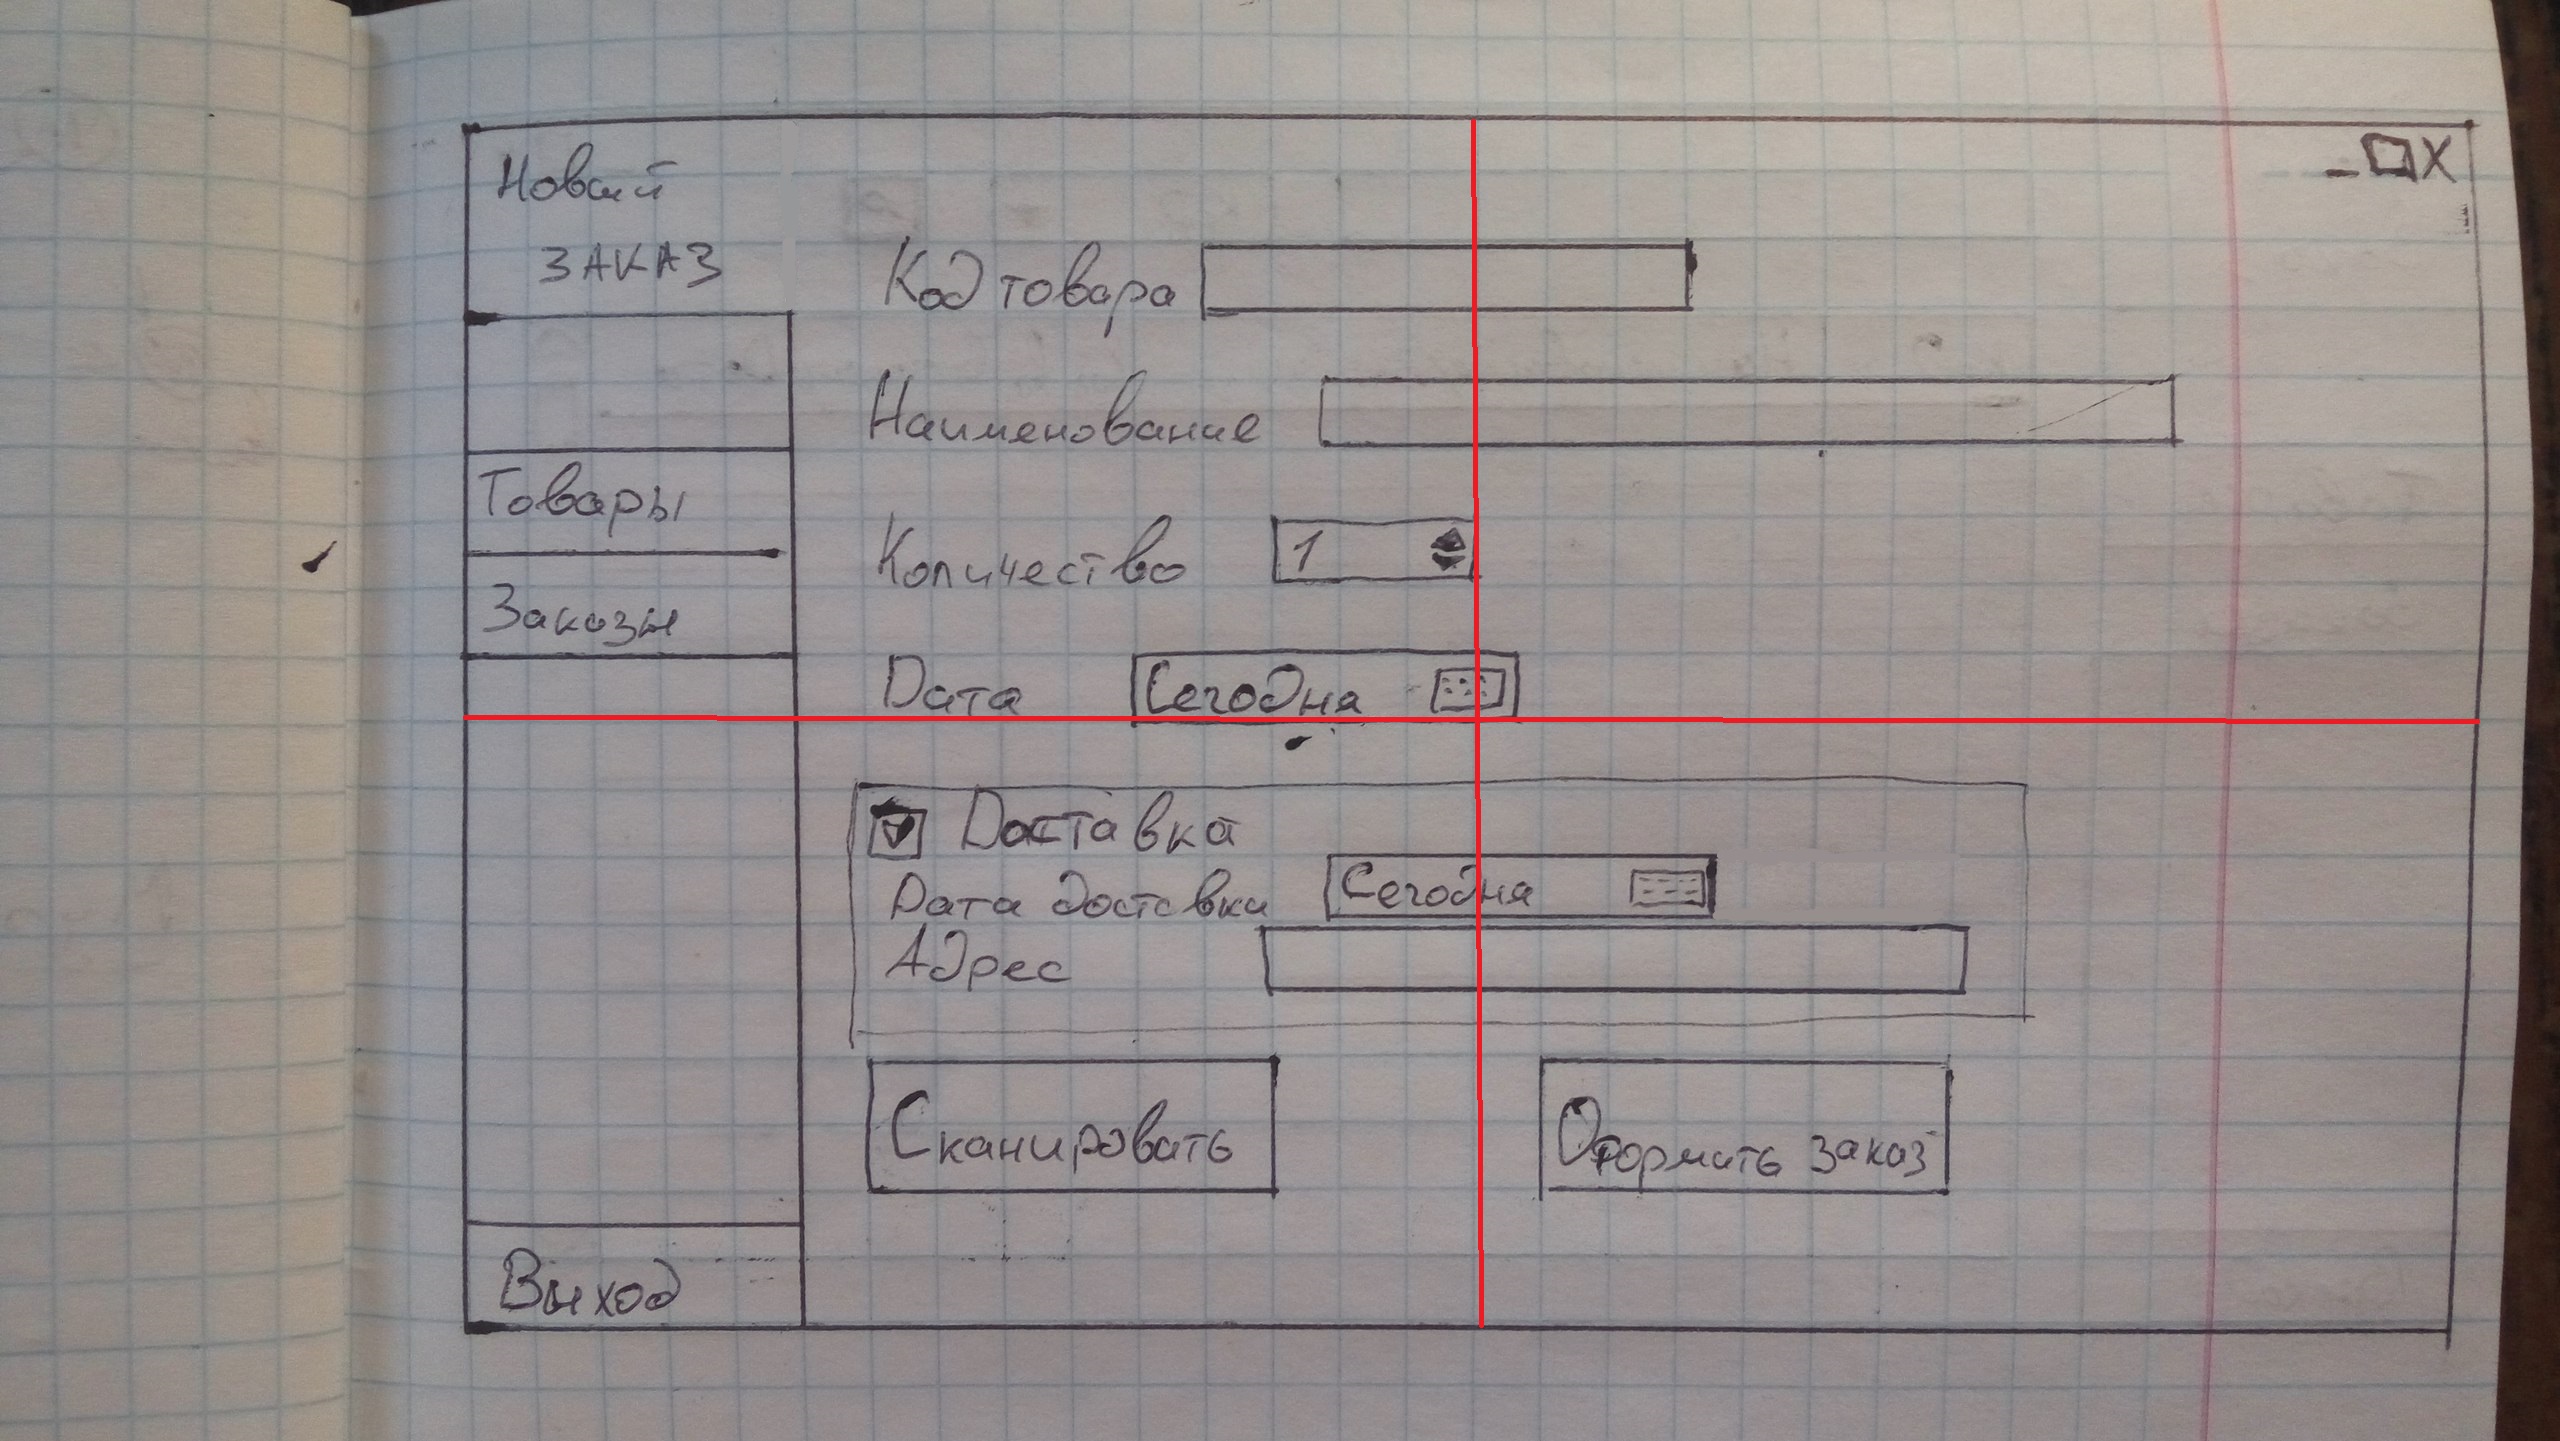 Новый
ЗАКАЗ
Товары
Заказы
Выход
_ □ X
Код товара
Наименование
Количество 1
Дата Сегодня
Доставка
Дата доставки Сегодня
Адрес
Сканировать
Оформить заказ